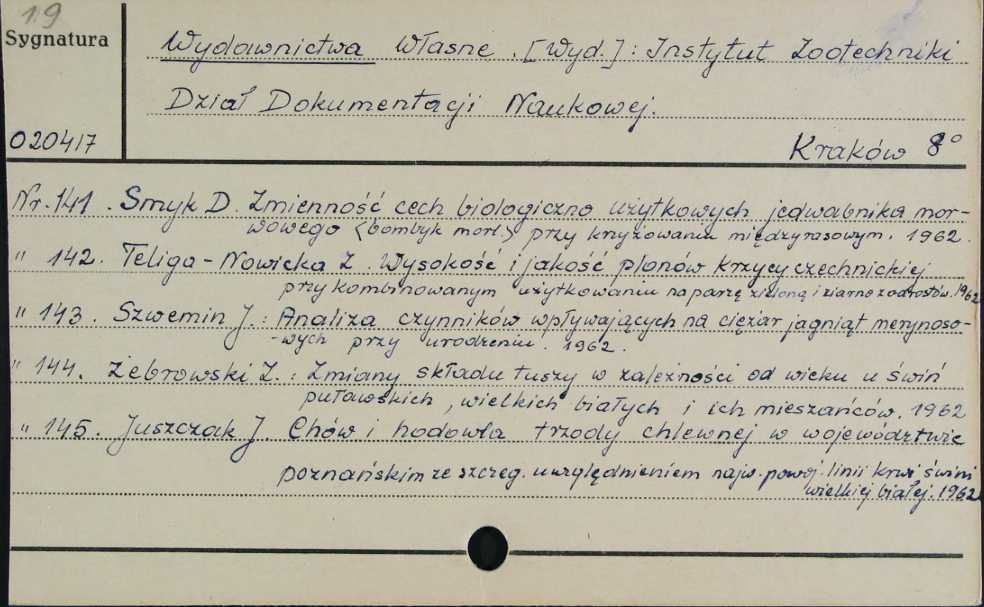 19
Sygnatura
Wydawnictwa Własne. [Wyd.]: Instytut Zootechniki
Dział Dokumentacji Naukowej.
020417
Kraków 8°
Nr. 141. Smyk D. Zmienność cech biologiczno użytkowych jedwabnika mor-
wowego (bombyk mori.) przy krzyżowaniu międzyrasowym. 1962.
" 142. Teliga-Nowicka Z. Wysokość i jakość plonów krzycy czechnickiej
przy kombinowanym użytkowaniu na paszę zieloną i ziarno z odrostów. 1962
" 143. Szwemin J.: Analiza czynników wpływających na ciężar jagniąt merynoso-
-wych przy urodzeniu. 1962.
" 144. Żebrowski Z.: Zmiany składu tuszy w zależności od wieku u świń
puławskich, wielkich białych i ich mieszańców. 1962
" 145. Juszczak J. Chów i hodowla trzody chlewnej w województwie
poznańskim ze szczeg. uwzględnieniem najw. powoj. linii krwi świni
wielkiej białej. 1962